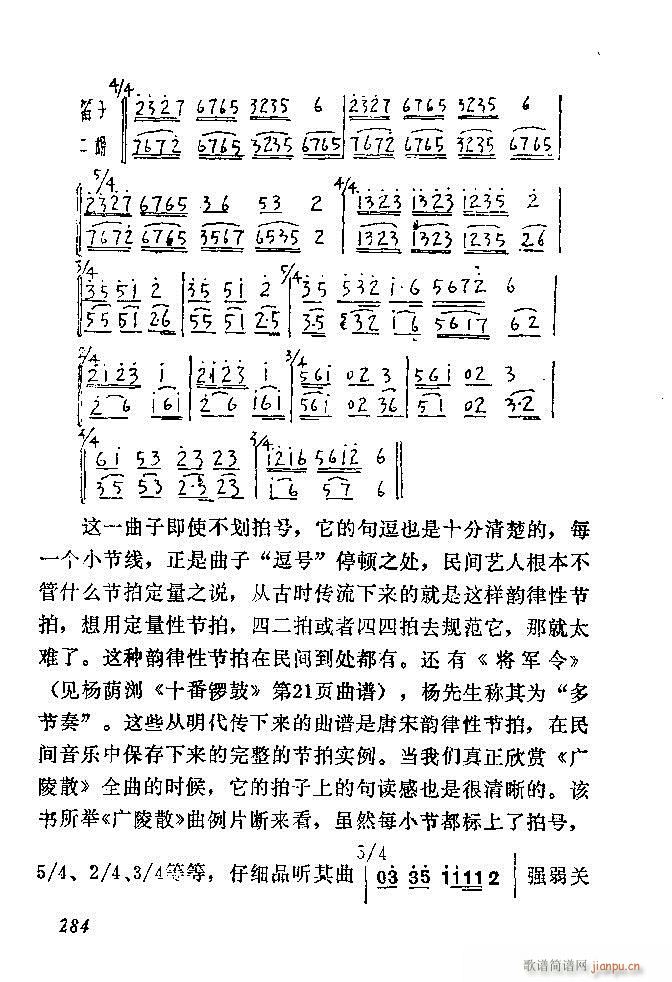 4/4
笛子 2327 6765 3235 6 2327 6765 3235 6
二胡 7672 6765 3235 6765 7672 6765 3235 6765
5/4 4/4
2327 6765 36 53 2 1323 1323 1235 2
7672 6765 3567 6535 2 1323 1323 1235 26
3/4 5/4
3551 2 35 51 2 35 532 1·6 5672 6
55 51 2·6 55 51 2·5 3·5 32 16 5617 62
2/4 3/4
2123 1 2123 1 561 02 3 561 02 3
2 6 161 2 6 161 561 02 36 51 02 3·2
4/4 3/4
61 53 23 23 1216 5612 6
35 53 2·3 23 1 6 57 6
这一曲子即使不划拍号，它的句逗也是十分清楚的，每
一个小节线，正是曲子“逗号”停顿之处，民间艺人根本不
管什么节拍定量之说，从古时传流下来的就是这样韵律性节
拍，想用定量性节拍，四二拍或者四四拍去规范它，那就太
难了。这种韵律性节拍在民间到处都有。还有《将军令》
（见杨荫浏《十番锣鼓》第21页曲谱），杨先生称其为“多
节奏”。这些从明代传下来的曲谱是唐宋韵律性节拍，在民
间音乐中保存下来的完整的节拍实例。当我们真正欣赏《广
陵散》全曲的时候，它的拍子上的句读感也是很清晰的。该
书所举《广陵散》曲例片断来看，虽然每小节都标上了拍号，
5/4、2/4、3/4等等，仔细品听其曲 5/4 03 35 11112 强弱关
284
歌谱简谱网 jianpu.cn